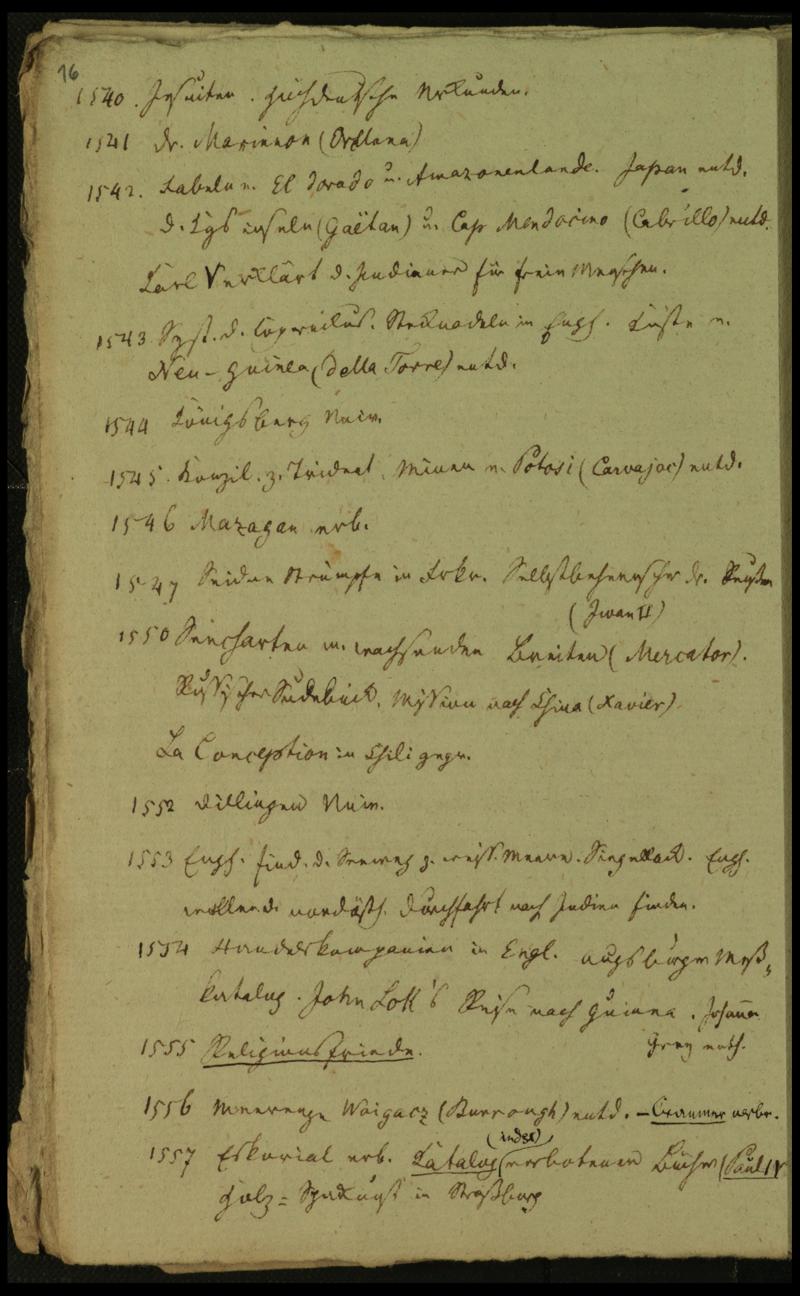 16
1540. Jesuiten. Hochdeutsche Urkunden.
1541 Dr. Marannon (Orellana)
1542. Fabeln v. El Dorado u. Amazonenlande. Japan entd.
D. Lys inseln (Gaëtan) u. Cap Mendocino (Cabrillo) entd.
Karl V erklärt d. Indianer für freie Menschen.
1543 Syst. d. Copernikus. Stecknadeln in Engl. Küste v.
Neu-Guinea (della Torre) entd.
1544 Königsberg Univ.
1545. Konzil. z. Trident. Minen v. Potosi (Carvajac) entd.
1546 Mazagan erb.
1547 Seidne Strümpfe in Frkr. Selbstbeherrscher dr. Reußen
(Iwan II)
1550 Seecharten m. wachsenden Breiten (Mercator).
Russischer Sudebnik. Mission nach China (Xavier)
La Conception in Chili gegr.
1552 Dillingen Univ.
1553 Engl. find. d. Seeweg z. weiss. Meere. Siegellack. Engl.
wollen d. nordöstl. Durchfahrt nach Indien finden.
1554 Handelskompanien in Engl. Augsburger Meß-
katalog. John Lok's Reise nach Guinea. Johanna
Grey enth.
1555 Religionsfriede.
1556 Meerenge Waigacz (Burrough) entd. – Cranmer verbr.
(index)
1557 Eskorial erb. Katalog verbotener Bücher (Paul IV
Holz = Sparkunst in Straßburg